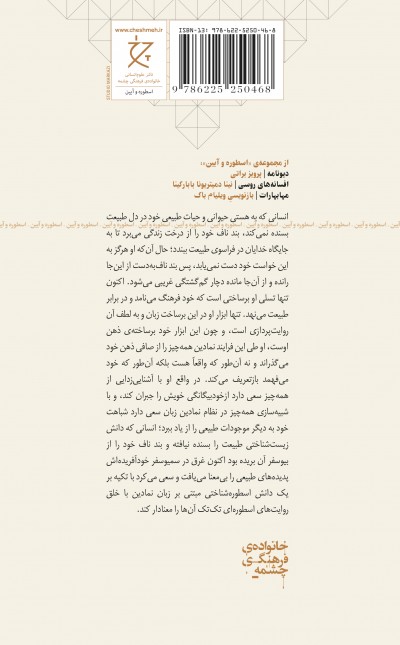 ISBN-13: 978-622-5250-46-8
9 786225 250468
www.cheshmeh.ir
نشر علوم‌انسانی
خانواده‌ی فرهنگی چشمه
اسطوره و آیین
از مجموعه‌ی «اسطوره و آیین»:
دیونامه | پرویز براتی
افسانه‌های روسی | نینا دمیتریونا بابارکینا
مهابهارات | بازنویسی ویلیام باک
انسانی که به هستی حیوانی و حیات طبیعی خود در دل طبیعت
بسنده نمی‌کند، بند ناف خود را از درخت زندگی می‌برد تا به
جایگاه خدایان در فراسوی طبیعت ببیند؛ حال آن‌که او هرگز به
این خواست خود دست نمی‌یابد، پس بند ناف‌به‌دست از این‌جا
رانده و از آن‌جا مانده دچار گم‌گشتگی غریبی می‌شود. اکنون
تنها تسلی او برساختی است که خود فرهنگ می‌نامد و در برابر
طبیعت می‌نهد. تنها ابزار او در این برساخت زبان و به لطف آن
روایت‌پردازی است، و چون این ابزار خود برساخته‌ی ذهن
اوست، او طی این فرایند نمادین همه‌چیز را از صافی ذهن خود
می‌گذراند و نه آن‌طور که واقعاً هست بلکه آن‌طور که خود
می‌فهمد بازتعریف می‌کند. در واقع او با آشنایی‌زدایی از
همه‌چیز سعی دارد ازخودبیگانگی خویش را جبران کند، و با
شبیه‌سازی همه‌چیز در نظام نمادین زبان سعی دارد شباهت
خود به دیگر موجودات طبیعی را از یاد ببرد؛ انسانی که دانش
زیست‌شناختی طبیعت را بسنده نیافته و بند ناف خود را از
بیوسفر آن بریده بود اکنون غرق در سمیوسفر خودآفریده‌اش
پدیده‌های طبیعی را بی‌معنا می‌یافت و سعی می‌کرد با تکیه بر
یک دانش اسطوره‌شناختی مبتنی بر زبان نمادین با خلق
روایت‌های اسطوره‌ای تک‌تک آن‌ها را معنادار کند.
خانواده‌ی
فرهنگی
چشمه